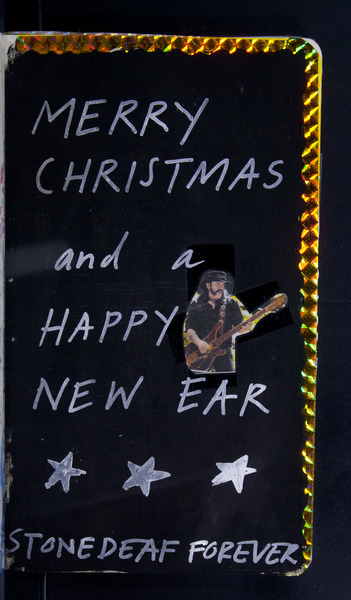 MERRY
CHRISTMAS
and a
HAPPY
NEW EAR
STONEDEAF FOREVER